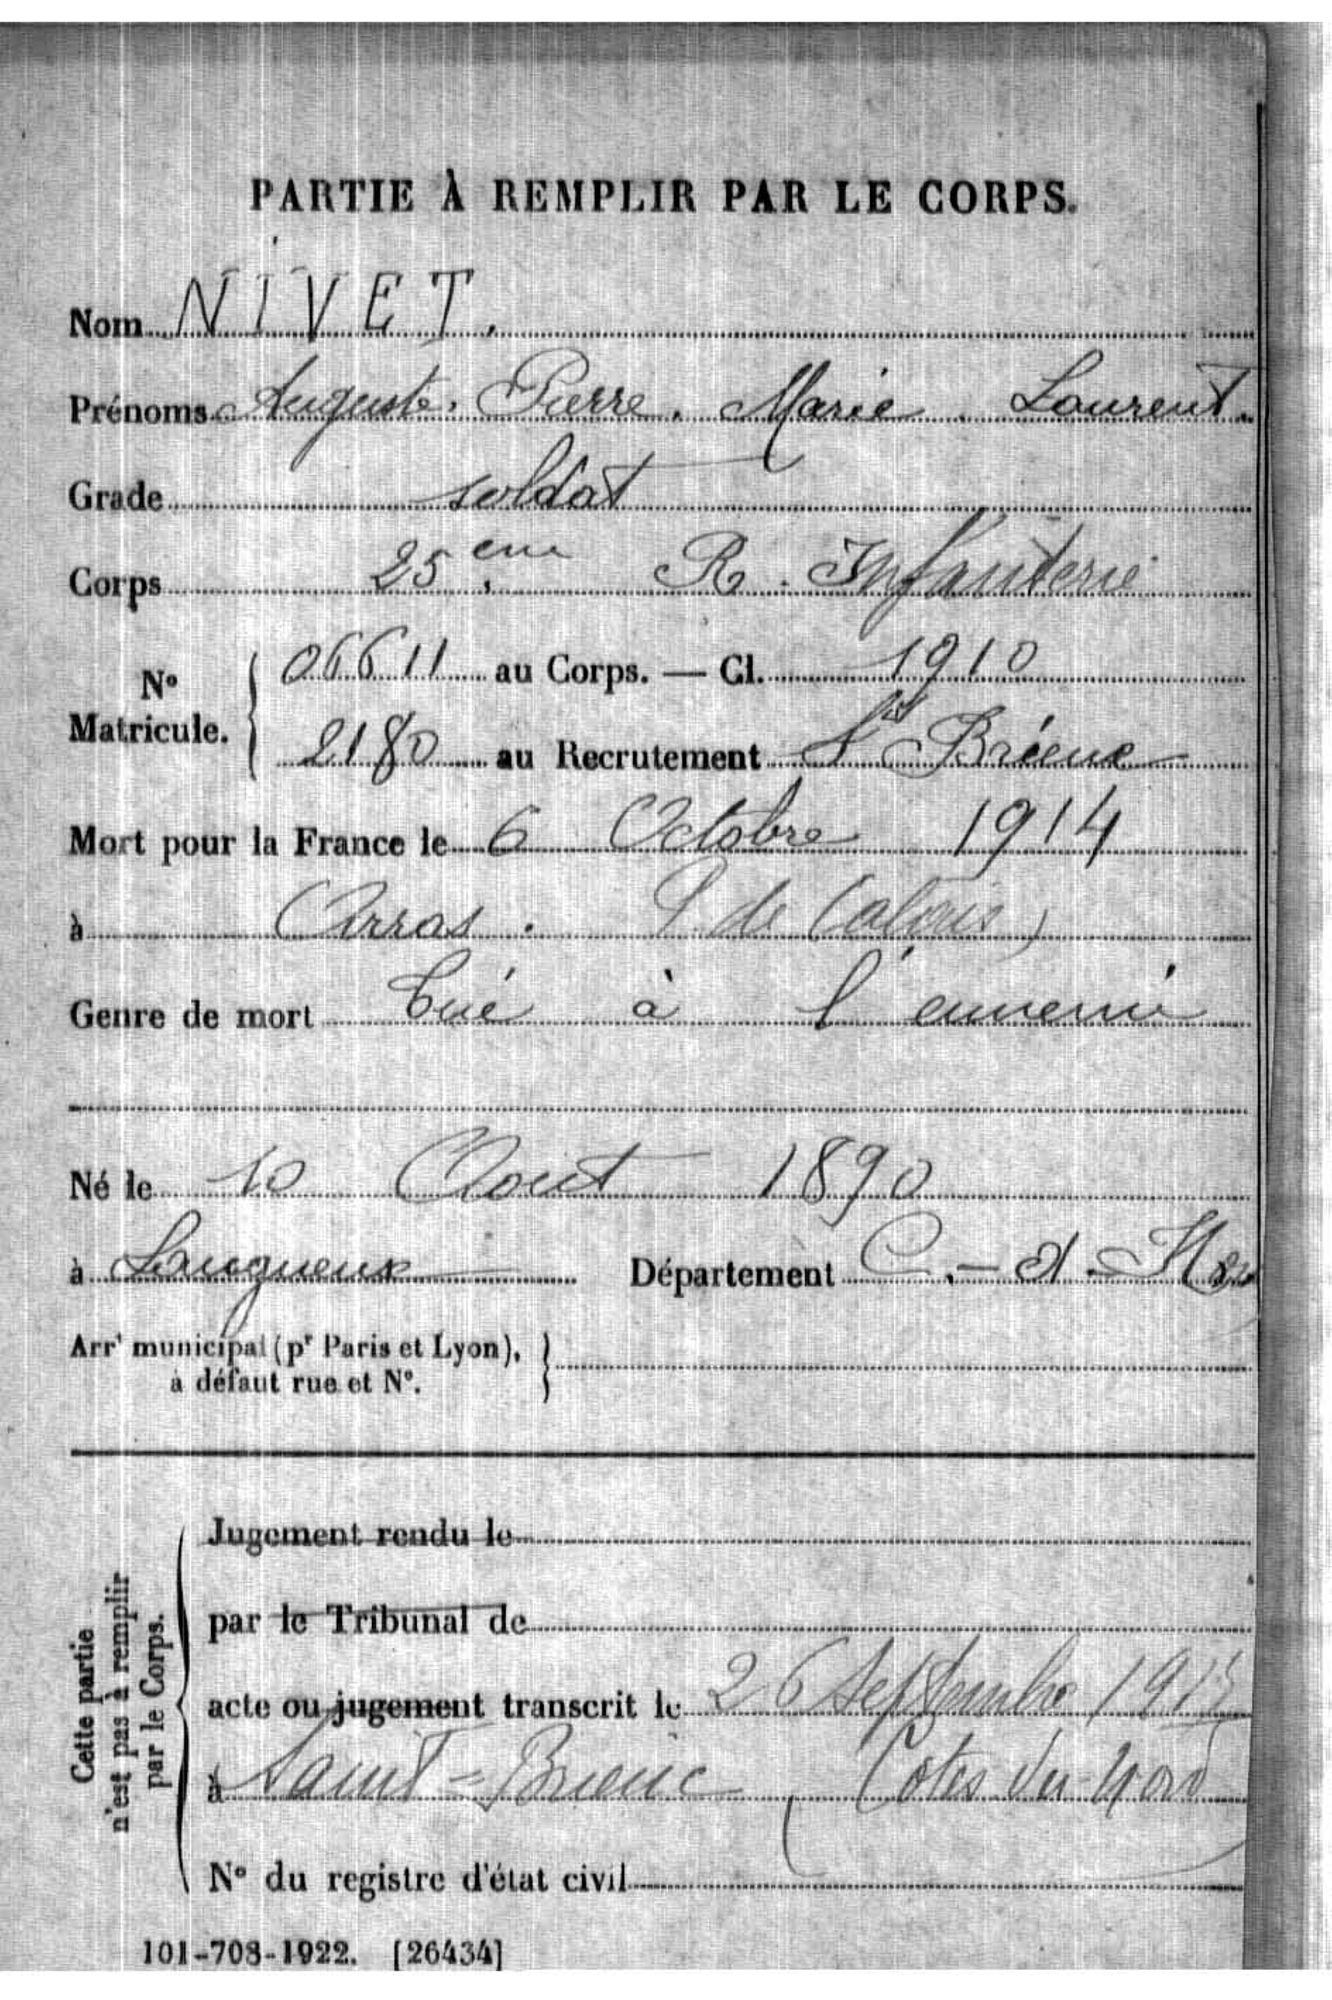 PARTIE À REMPLIR PAR LE CORPS.
Nom NIVET.
Prénoms Auguste. Pierre. Marie. Laurent.
Grade soldat
Corps 25 eme R. Infanterie
N° Matricule. 06611 au Corps. — Cl. 1910
2180 au Recrutement St Brieuc
Mort pour la France le 6 Octobre 1914
à Arras. P. de Calais)
Genre de mort tué à l'ennemi
Né le 10 Aout 1890
à Langueux Département C.-d.-Nord
Arrt municipal (pr Paris et Lyon),
à défaut rue et N°.
Cette partie
n'est pas à remplir
par le Corps.
Jugement rendu le
par le Tribunal de
acte ou jugement transcrit le 26 Septembre
à Saint-Brieuc (Cotes du Nord
N° du registre d'état civil
101-708-1922. [26434]